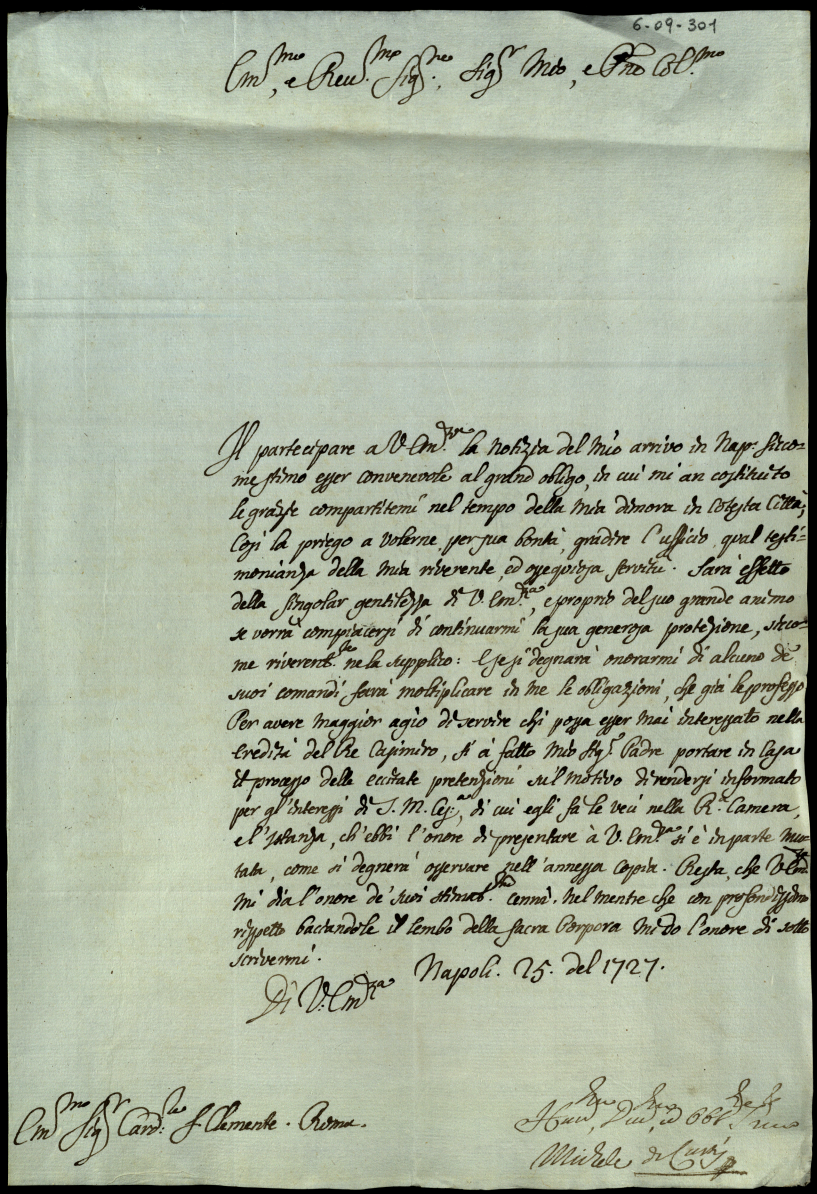 6-09-301
Em.mo, e Reu.mo Sig.re, Sig.r Mio, e Pne Col.mo
Il partecipare a V. Em.za la notizia del mio arrivo in Nap. sicco=
me stimo esser convenevole al grand obligo, in cui mi an costituito
le grazie compartitemi nel tempo della mia dimora in cotesta Città;
Così la priego a volerne, per sua bontà, gradire l'ufficio, qual testi=
monianza della mia riverente, ed ossequiosa servitù. Sarà effetto
della singolar gentilezza di V. Em.za, e proprio del suo grande animo
se vorrà compiacersi di continuarmi la sua generosa protezione, sicco=
me riverent.te ne la supplico: E se si degnarà onorarmi di alcuno de'
suoi comandi farà moltiplicare in me le obligazioni, che già le professo
Per avere maggior agio di servire chi possa esser mai interessato nella
eredità del Re Casimiro, si à fatto mio Sig.r Padre portare in Casa
il processo delle eccitate pretenzioni sul motivo di rendersi informato
per gl'interessi di S. M. Ces.a, di cui egli fà le veci nella R.a Camera,
e l'istanza, ch'ebbi l'onore di presentare à V. Em.za si è in parte mu=
tata, come si degnerà osservare nell'annessa copia. Resta, che V. Em.za
mi dia l'onore de' suoi stimat.mi cenni. nel mentre che con profondissimo
rispetto baciandole il lembo della sacra Porpora mi do l'onore di sotto
scrivermi.
Napoli. 25. del 1727.
Di V. Em.za
Em.mo Sig.r Card.le S. Clemente. Roma.
Hum.mo, Div.mo, ed Obb.mo
Michele di